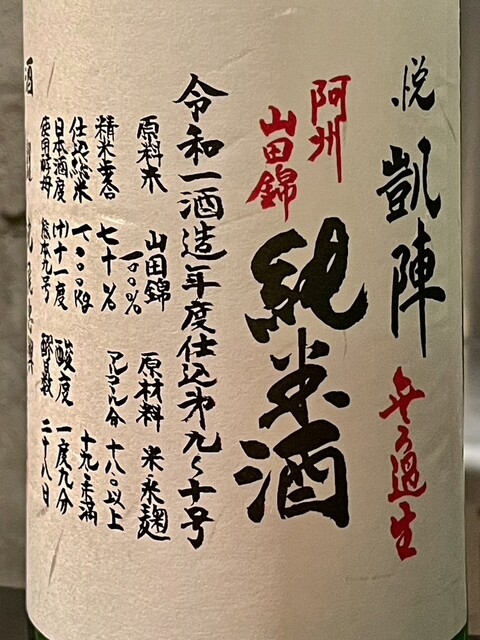 悦 凱陣 無ろ過生
阿州
山田錦
純米酒
令和一酒造年度仕込㐧九〜十号
原料米 山田錦一〇〇% 原材料 米米麹
精米歩合 七十% アルコール分 十八〇以上
仕込総米 十九〇未満
日本酒度 (+)十一度 酸度 一度九分
使用酵母 熊本九号 醪日数 二十八日
酒